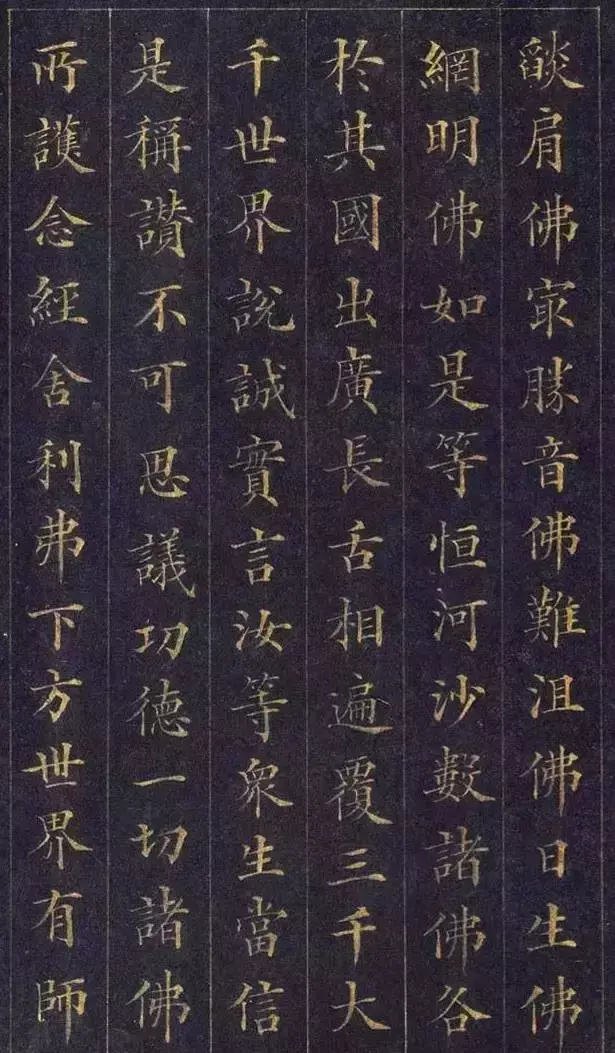 燄肩佛冣勝音佛難沮佛日生佛
網明佛如是等恒河沙數諸佛各
於其國出廣長舌相遍覆三千大
千世界說誠實言汝等衆生當信
是稱讃不可思議功德一切諸佛
所護念經舍利弗下方世界有師